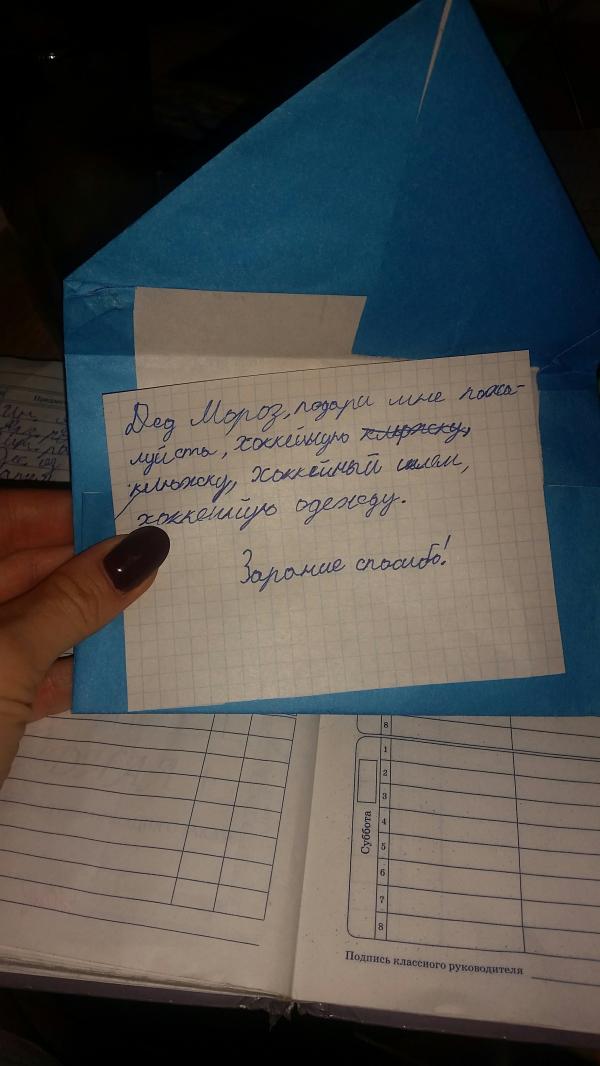 Дед Мороз, подари мне пожа-
луйста, хоккейную клюжску,
клюжску, хоккейный шлем,
хоккейную одежду.
Зарание спасибо!
Предме
8
1
2
3
4
5
6
7
8
Суббота
Подпись классного руководителя